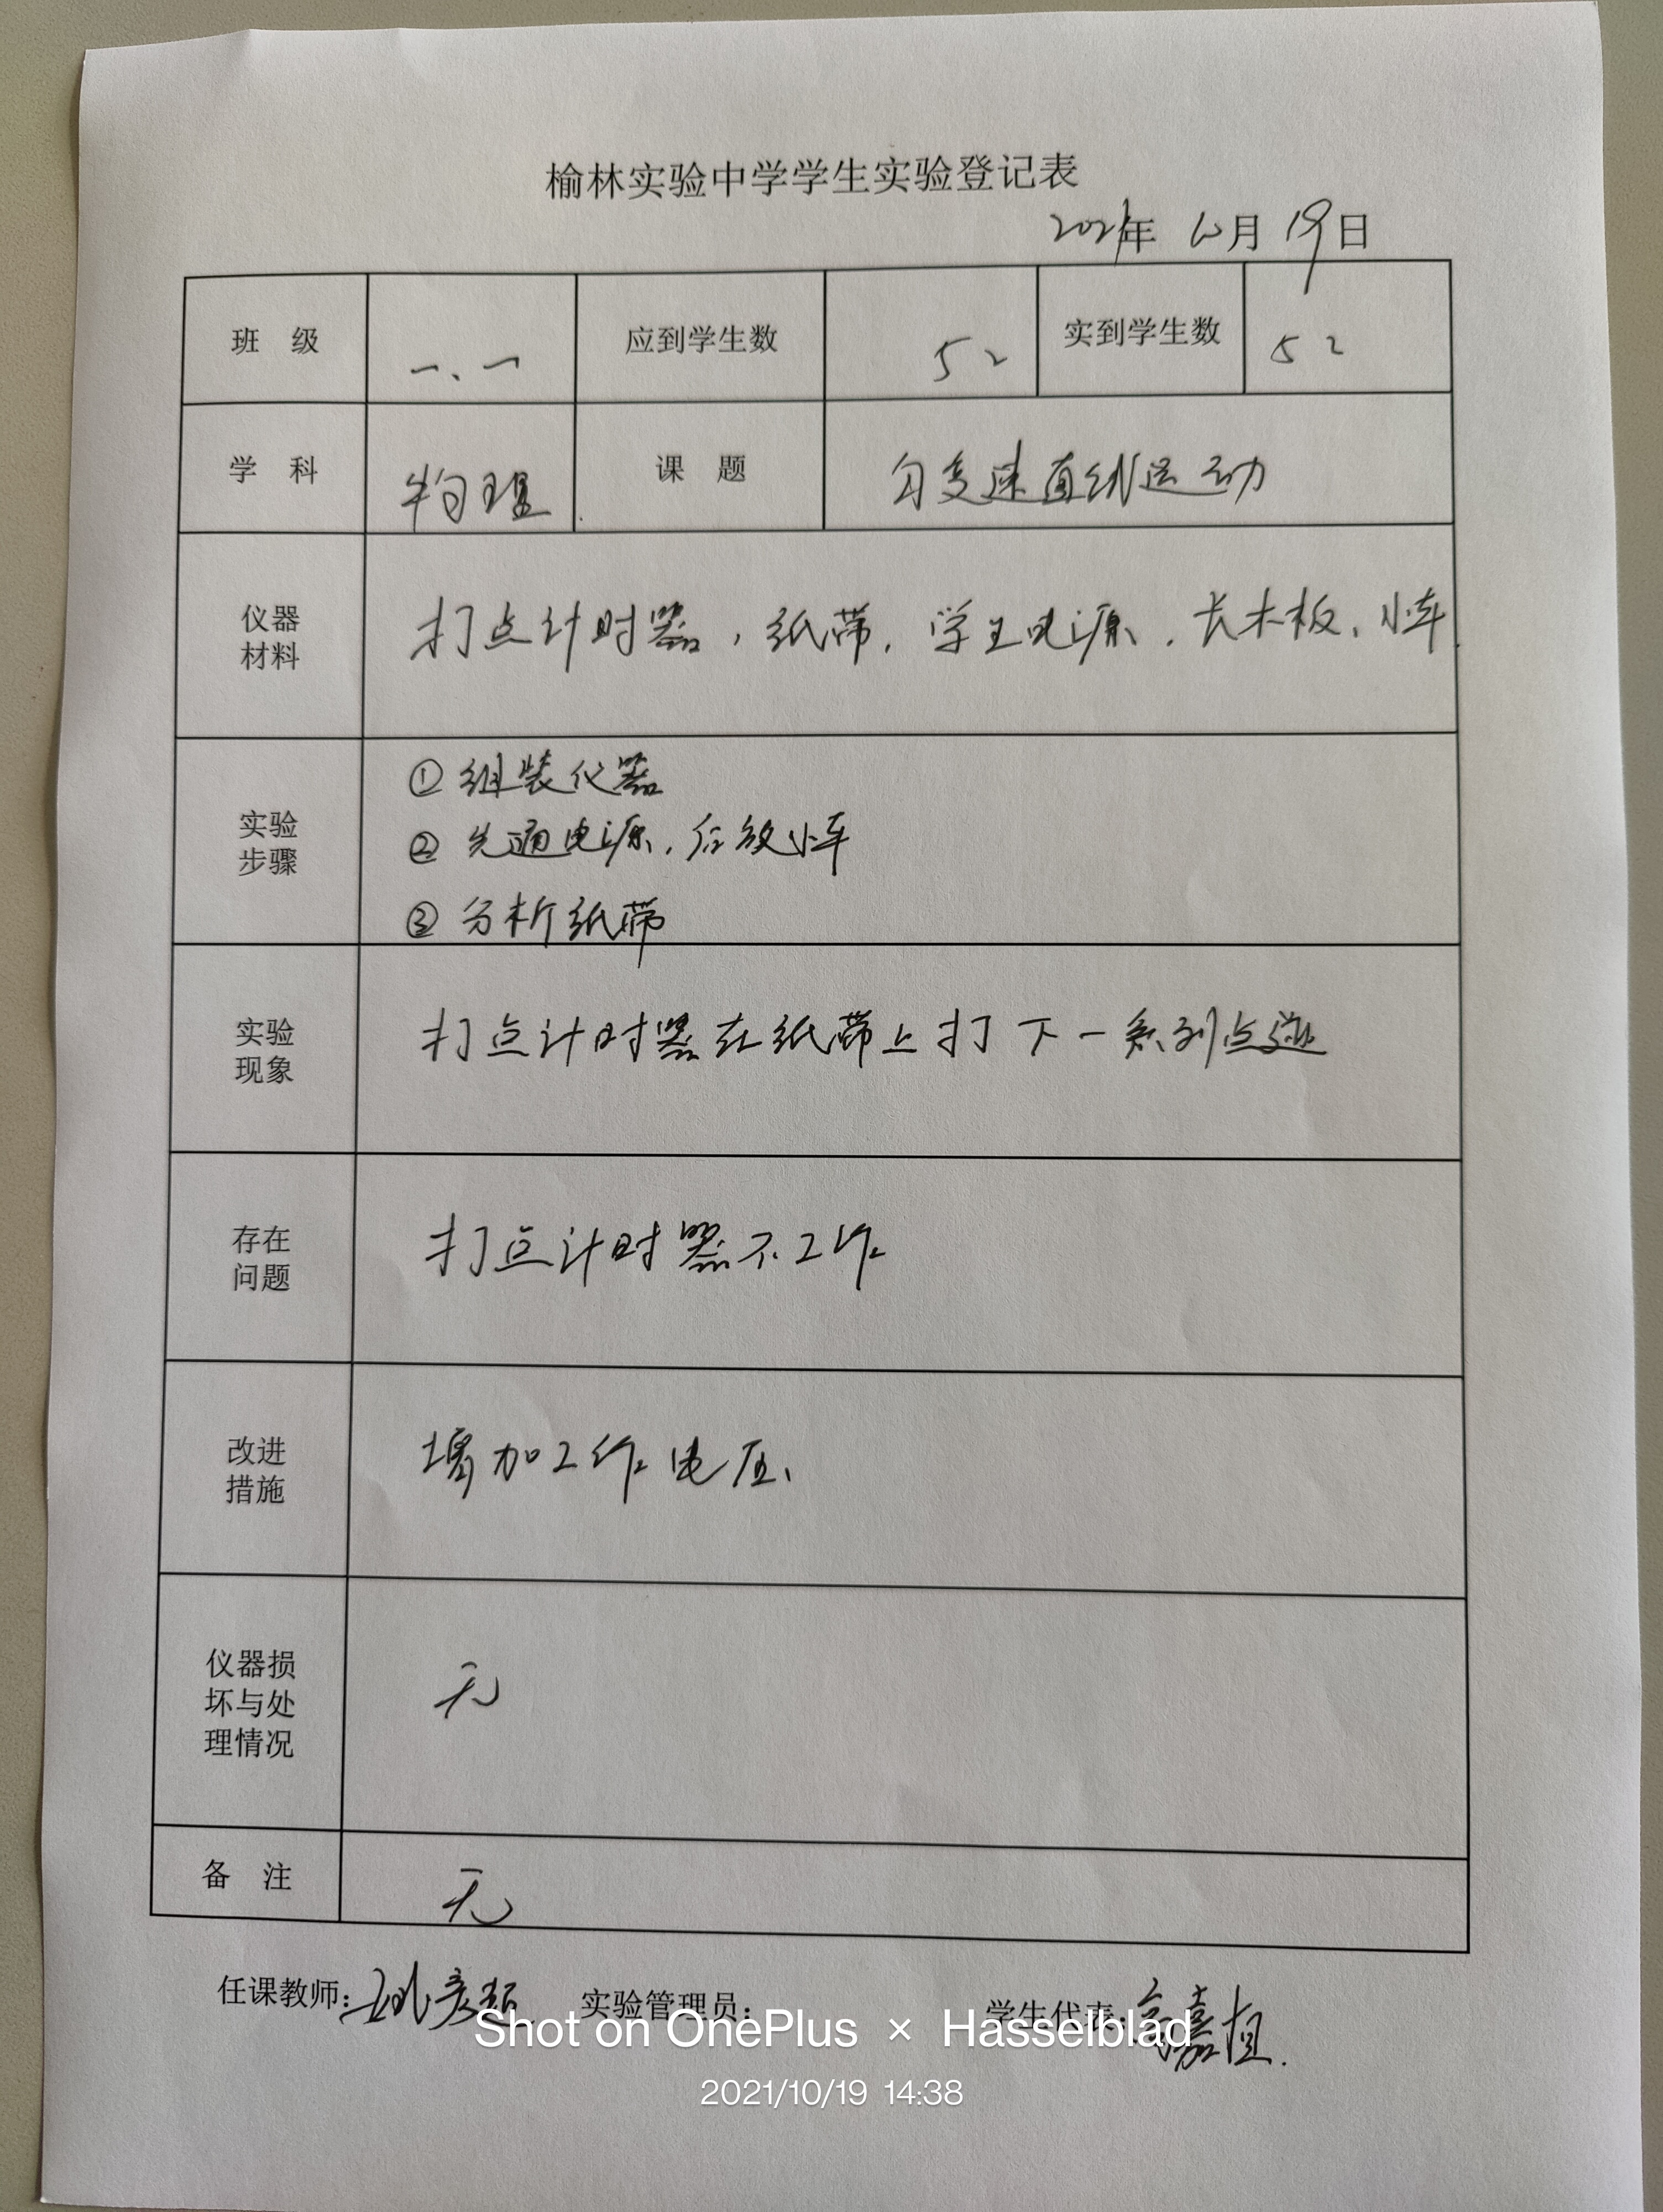 榆林实验中学学生实验登记表
2021年 10月 19日
班 级 一、一 应到学生数 52 实到学生数 52
学 科 物理 课 题 匀变速直线运动
仪器
材料
打点计时器，纸带，学生电源，长木板、小车
实验
步骤
① 组装仪器
② 先通电源，后放小车
③ 分析纸带
实验
现象
打点计时器在纸带上打下一系列点迹
存在
问题
打点计时器不工作
改进
措施
增加工作电压、
仪器损
坏与处
理情况
无
备 注 无
任课教师： 实验管理员： 学生代表：高嘉
Shot on OnePlus × Hasselblad
2021/10/19 14:38